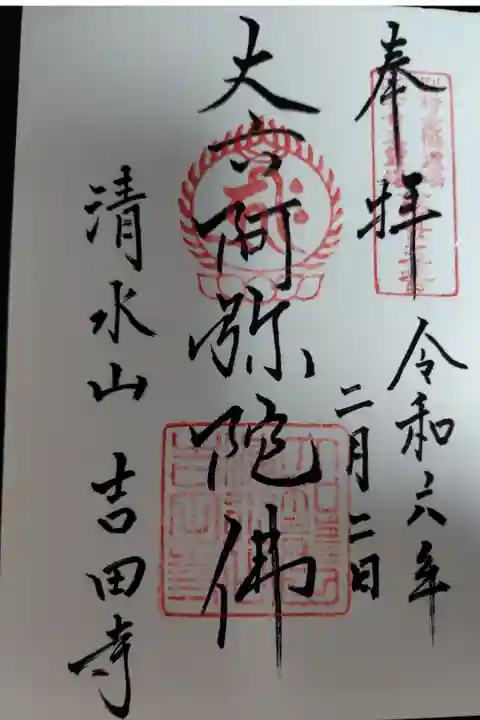 奉拝
令和六年
二月二日
丈六阿弥陀佛
清水山 吉田寺